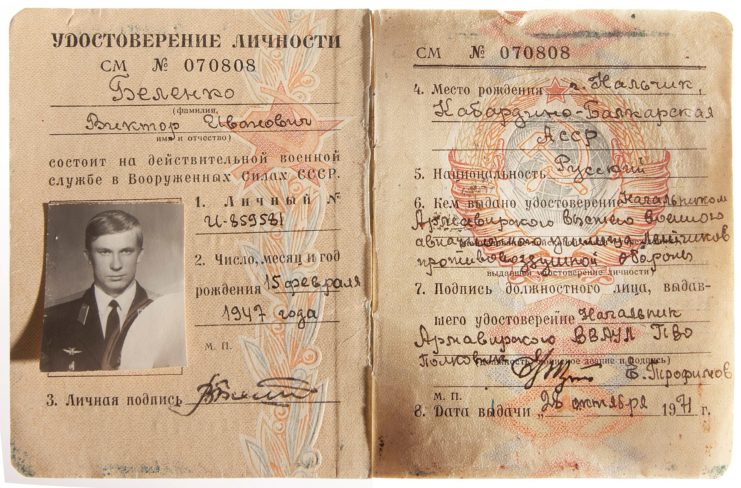 УДОСТОВЕРЕНИЕ ЛИЧНОСТИ
СМ № 070808
Беленко
(фамилия,
Виктор Иванович
имя и отчество)
состоит на действительной военной
службе в Вооруженных Силах СССР.
1. Личный №
И-859581
2. Число, месяц и год
рождения 15 февраля
1947 года
М. П.
3. Личная подпись
СМ № 070808
4. Место рождения г. Нальчик,
Кабардино-Балкарская
АССР
5. Национальность Русский
6. Кем выдано удостоверение Начальником
Армавирского высшего военного
авиационного училища летчиков
противовоздушной обороны
выдавшей удостоверение личности)
7. Подпись должностного лица, выдав-
шего удостоверение Начальник
Армавирского ВВАУЛ ПВО
Полковник В. Трофимов
звание и подпись)
М. П.
8. Дата выдачи „26 октября 1971 г.